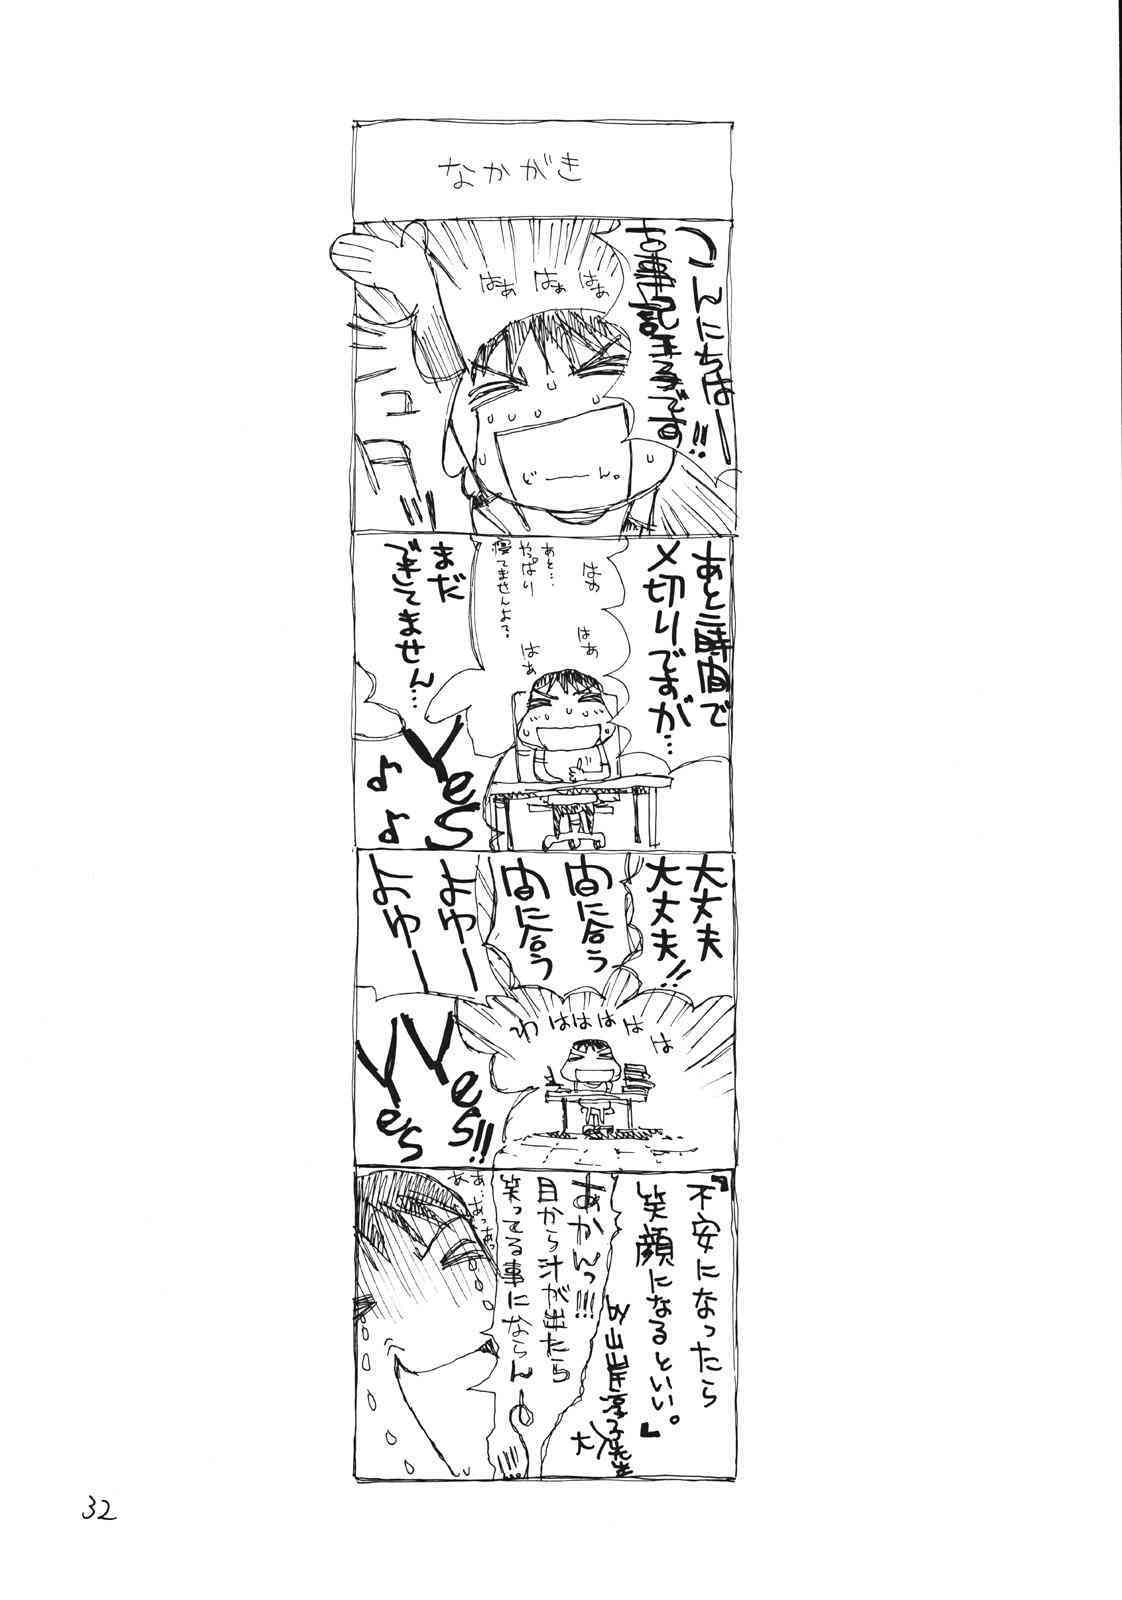 なかがき
こんにちはー!!
はぁ はぁ はぁ
どーーん。
あと三時間で
〆切りですが…
はぁ
はぁ
はぁ
あと…
やっぱり
寝てませんよ?
まだ
できてません…
Yes
♪
♪
大丈夫
大丈夫!!
間に合う
間に合う
よゆー
よゆー
わはははは
Yes!!
Yes
『不安になったら
笑顔になるといい。』
by山岸凉子大先生
あかんっ!!!
目から汁が出たら
笑ってる事にならんー
32